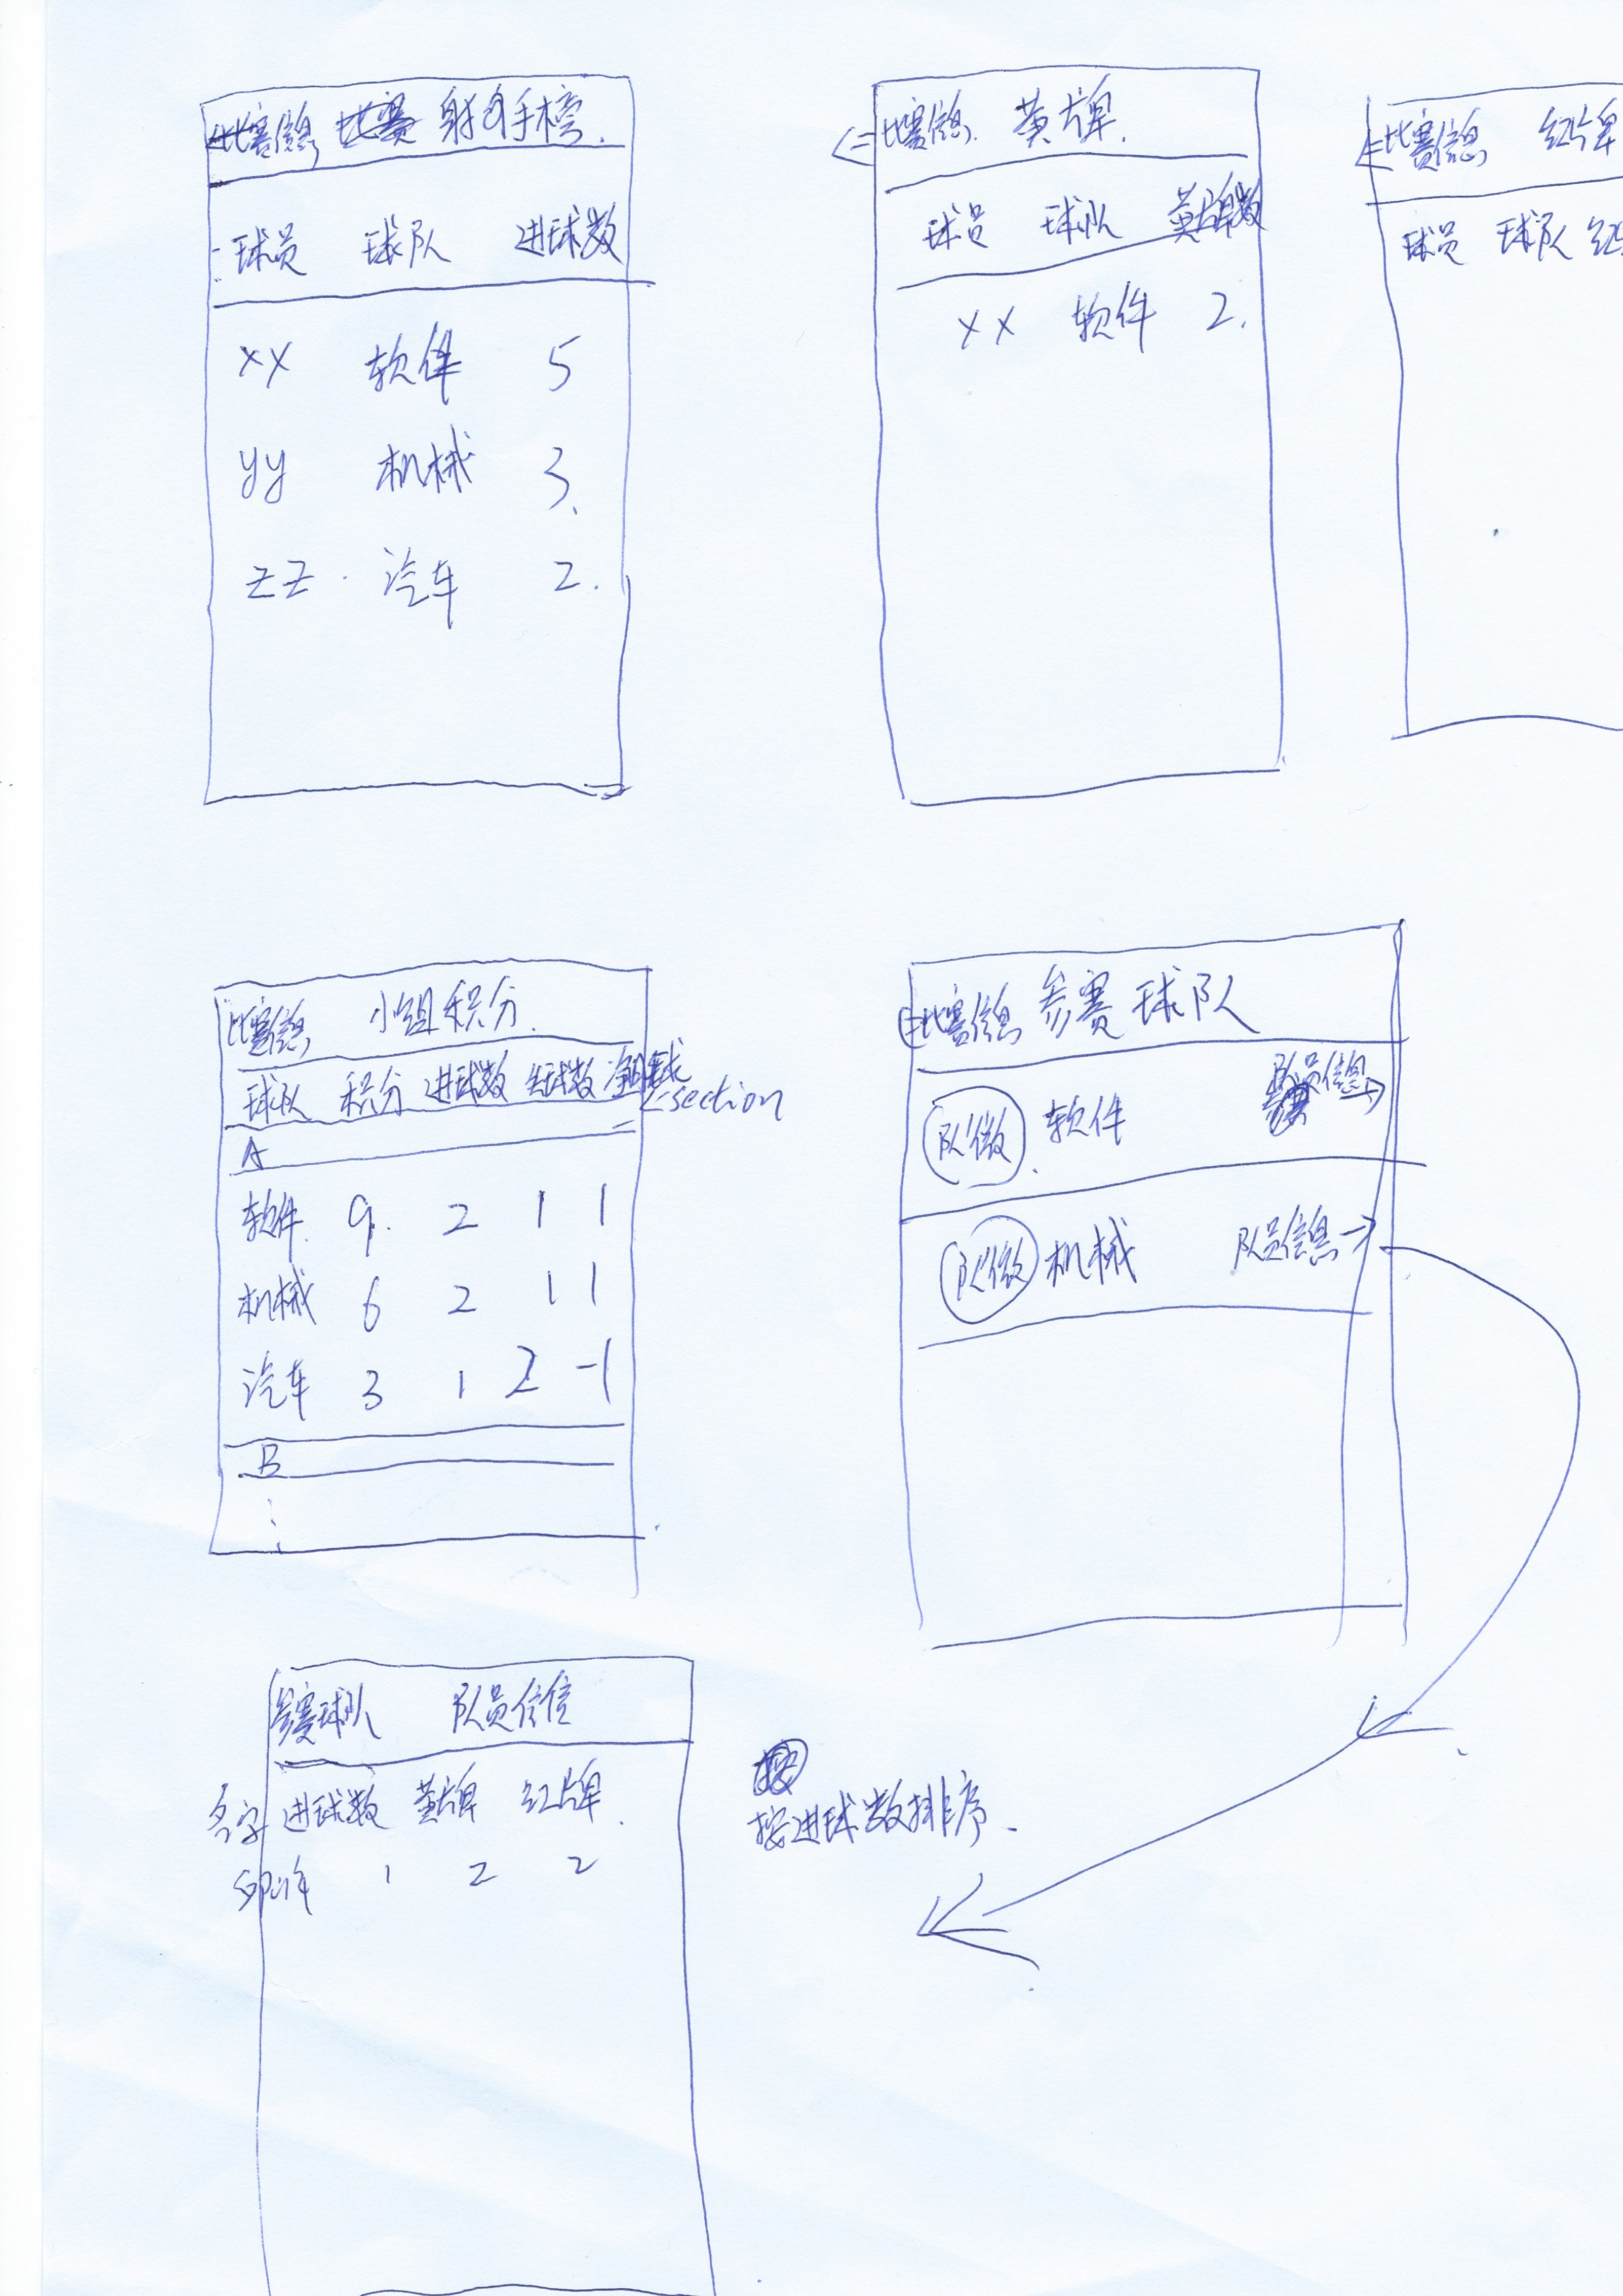 比赛信息 射手榜.
球员 球队 进球数
xx 软件 5
yy 机械 3
zz 汽车 2.
比赛信息. 黄牌.
球员 球队 黄牌数
xx 软件 2.
比赛信息 红牌
球员 球队 红
比赛信息 小组积分.
球队 积分 进球数 失球数 净胜球
<-section
A
软件 9. 2 1 1
机械 6 2 1 1
汽车 3 1 2 -1
B
比赛信息 参赛球队
队徽 软件 队员信息→
队徽 机械 队员信息→
参赛球队 队员信息
名字 进球数 黄牌 红牌.
1 2 2
按进球数排序.